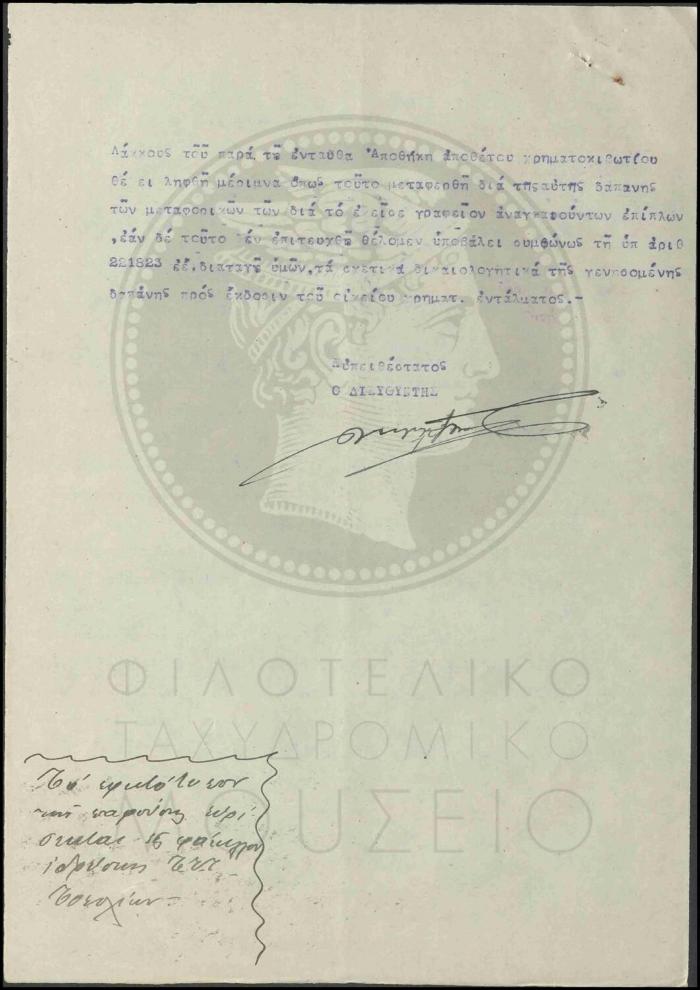 Λάκκους τοῦ παρά τῇ ἐνταῦθα Ἀποθήκη ἀποθέτου χρηματοκιβωτίου
θέ ει ληφθῆ μέριμνα ὅπως τοῦτο μεταφερθῆ διά τῆςαὐτῆς δαπάνης
τῶν μεταφορικῶν τῶν διά τό ἐκεῖσε γραφεῖον ἀναγκαιούντων ἐπίπλων
,ἐάν δέ τοῦτο δέν ἐπιτευχθῆ θέλομεν ὑποβάλει συμφώνως τῇ ὑπ ἀριθ
221823 ἐξ.διαταγῇ ὑμῶν,τά σχετικά δικαιολογητικά τῆς γενησομένης
δαπάνης πρός ἔκδοσιν τοῦ οἰκείου χρηματ. ἐντάλματος.-
Εὐπειθέστατος
Ο ΔΙΕΥΘΥΝΤΗΣ
ΦΙΛΟΤΕΛΙΚΟ
ΤΑΧΥΔΡΟΜΙΚΟ
ΜΟΥΣΕΙΟ
Τό
τῆς παρούσης εὑρί
σκεται φάκελλον
ἱδρύσεως